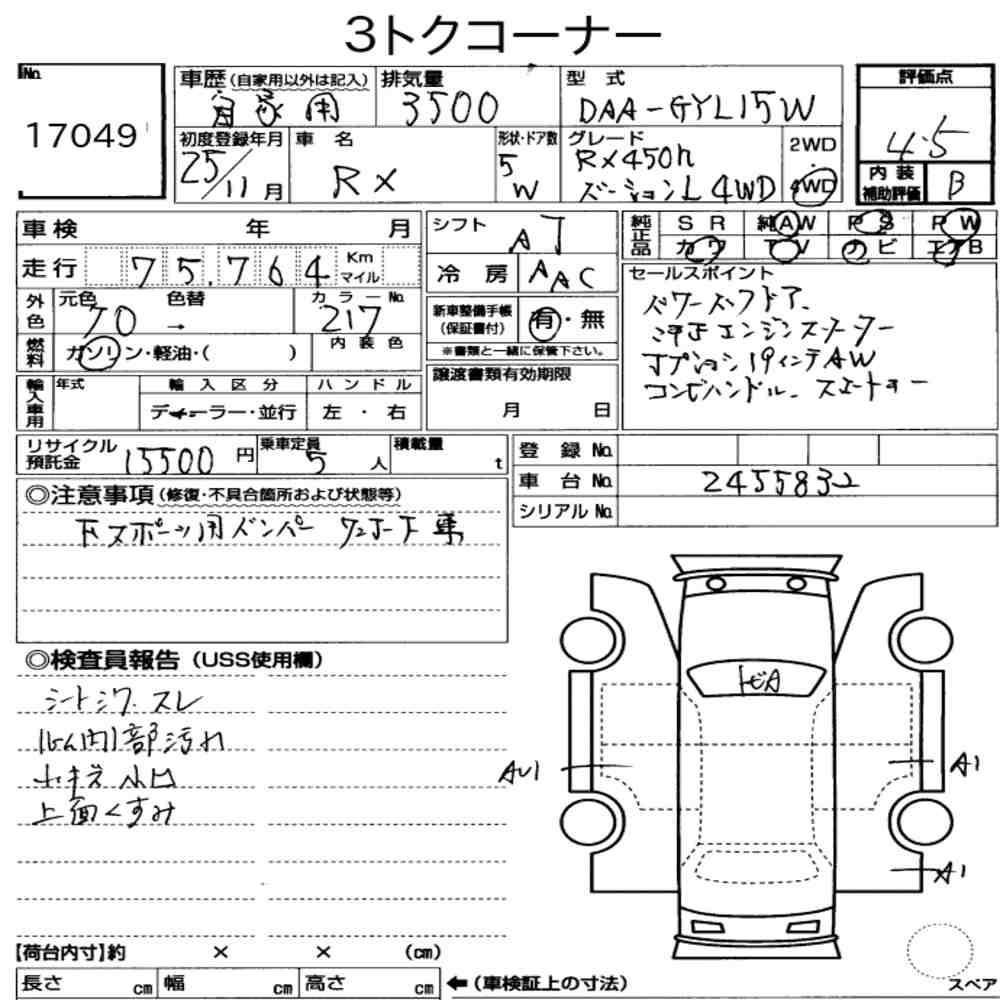 3トクコーナー
No.
17049
車歴 (自家用以外は記入)
自家用
排気量
3500
型 式
DAA-GYL15W
評価点
4.5
初度登録年月
25/11月
車 名
RX
形状・ドア数
5
W
グレード
RX450h
バージョンL 4WD
2WD
・
4WD
内 装
補助評価
B
車検 年 月
シフト
AT
純正品
SR 純AW PS PW
カワ TV ナビ エアB
走行 75,764 Km
マイル
冷房 AAC
セールスポイント
パワーバックドア、
外色
元色 色替 カラーNo.
→ 217
新車整備手帳
(保証書付)
有・無
※書類と一緒に保管下さい。
燃料
ガソリン・軽油・( )
内装色
エンジンスターター
オプション19インチAW
コンビハンドル、
輸入車用
年式
輸入区分
ハンドル
ディーラー・並行
左・右
譲渡書類有効期限
月 日
リサイクル
預託金
15500円
乗車定員
5人
積載量
t
登録No.
車台No. 2455832
シリアルNo.
◎注意事項(修復・不具合箇所および状態等)
◎検査員報告 (USS使用欄)
シートシワ、スレ
内部汚れ
小凹
上面くすみ
トビA
AU1
A1
A1
スペア
【荷台内寸】約 × × (cm)
長さ cm 幅 cm 高さ cm
←(車検証上の寸法)